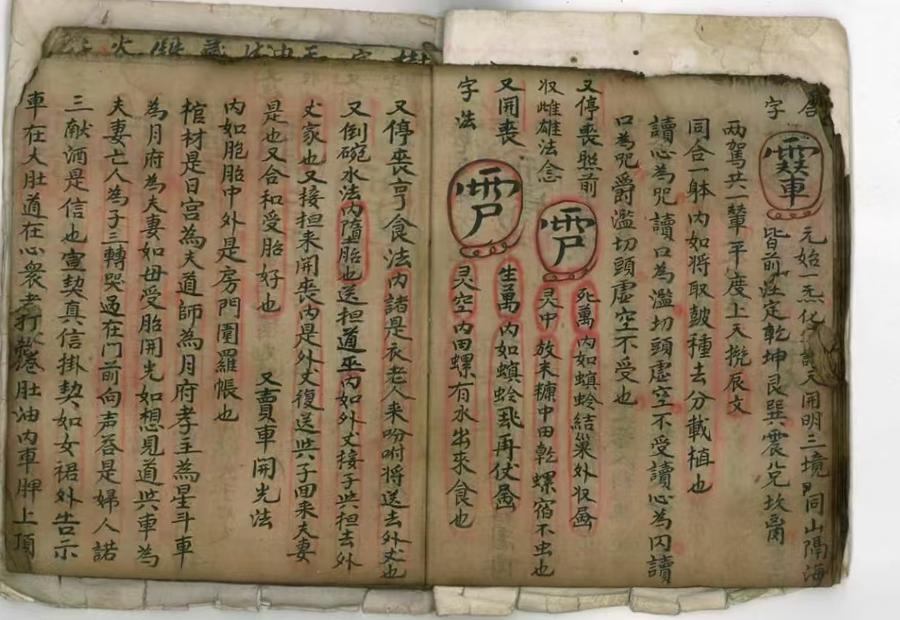 字
元始一炁化 天開明三境 同山隔海
皆前 定乾坤艮巽震兌坎离
両駕共一輦平度上天搅辰文
同合一躰内如将取鼓種去分載植也
讀心為咒讀口為濫切頭虚空不受讀心為内讀
口為咒爵濫切頭虚空不受也
又停喪脫前 死萬内如螟蛉結巢外收屬
収雌雄法念 灵中放末糠中田乾螺宿不虫也
又開喪 生萬内如螟蛉 再伏屬
字法 灵空内田螺有水出來食也
又停喪亨食法内諸是衣老人来吩咐将送去外丈也
又倒碗水法内隨胎也送担道巫内如外丈接子共担去外
丈家也又接担来開喪内是外丈復送共子回来夫妻
是也又合和受胎好也 又賣車開光法
内如胞胎中外是房門圍羅帳也
棺材是日宫為夫道師為月府孝主為星斗車
為月府為夫妻如毋受胎開光如想見道共車為
夫妻亡人為子三轉哭過在门前向声答是婦人諾
三献酒是信也宣契真信掛契如女裙外告示
車在大肚道在心衆孝打 肚油内車脾上頂